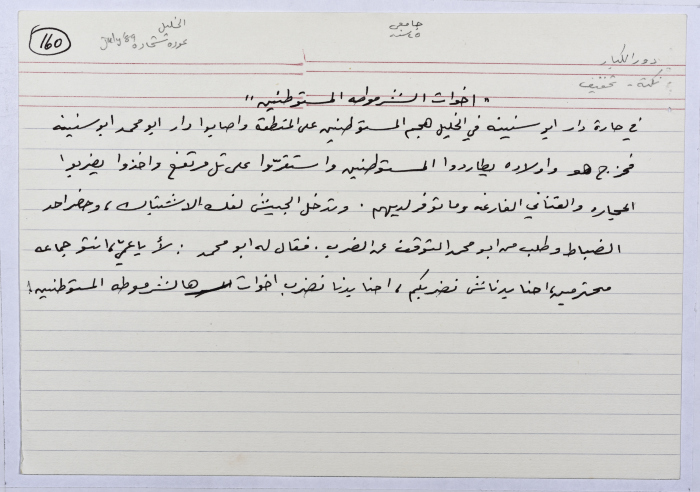 160
الخليل
عوده شحاده July 89
جامعي
٤٥ سنه
دور الكبار
نكتة - تخفيف
"اخوات الشرموطه المستوطنين"
في حارة دار ابو سنينه في الخليل هجم المستوطنين على المنطقة واصابوا دار ابو محمد ابو سنينه
فخرج هو واولاده يطاردوا المستوطنين واستقرّوا على تل مرتفع واخذوا يضربوا
الحجاره والقناني الفارغه وما توفر لديهم. وتدخل الجيش لفك الاشتباك، وحضر احد
الضباط وطلب من ابو محمد التوقف عن الضرب. فقال له ابو محمد: لأ يا عميّ، انتو جماعه
محترمين، احنا بدناش نضربكم، احنا بدنا نضرب اخوات هالشرموطه المستوطنين!